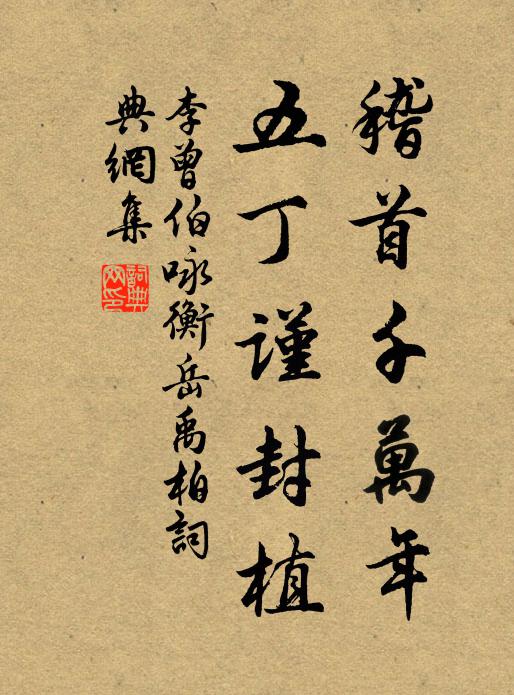 稽首千萬年
五丁謹封植
李曾伯咏衡岳禹柏詞
典網集
詞典網印